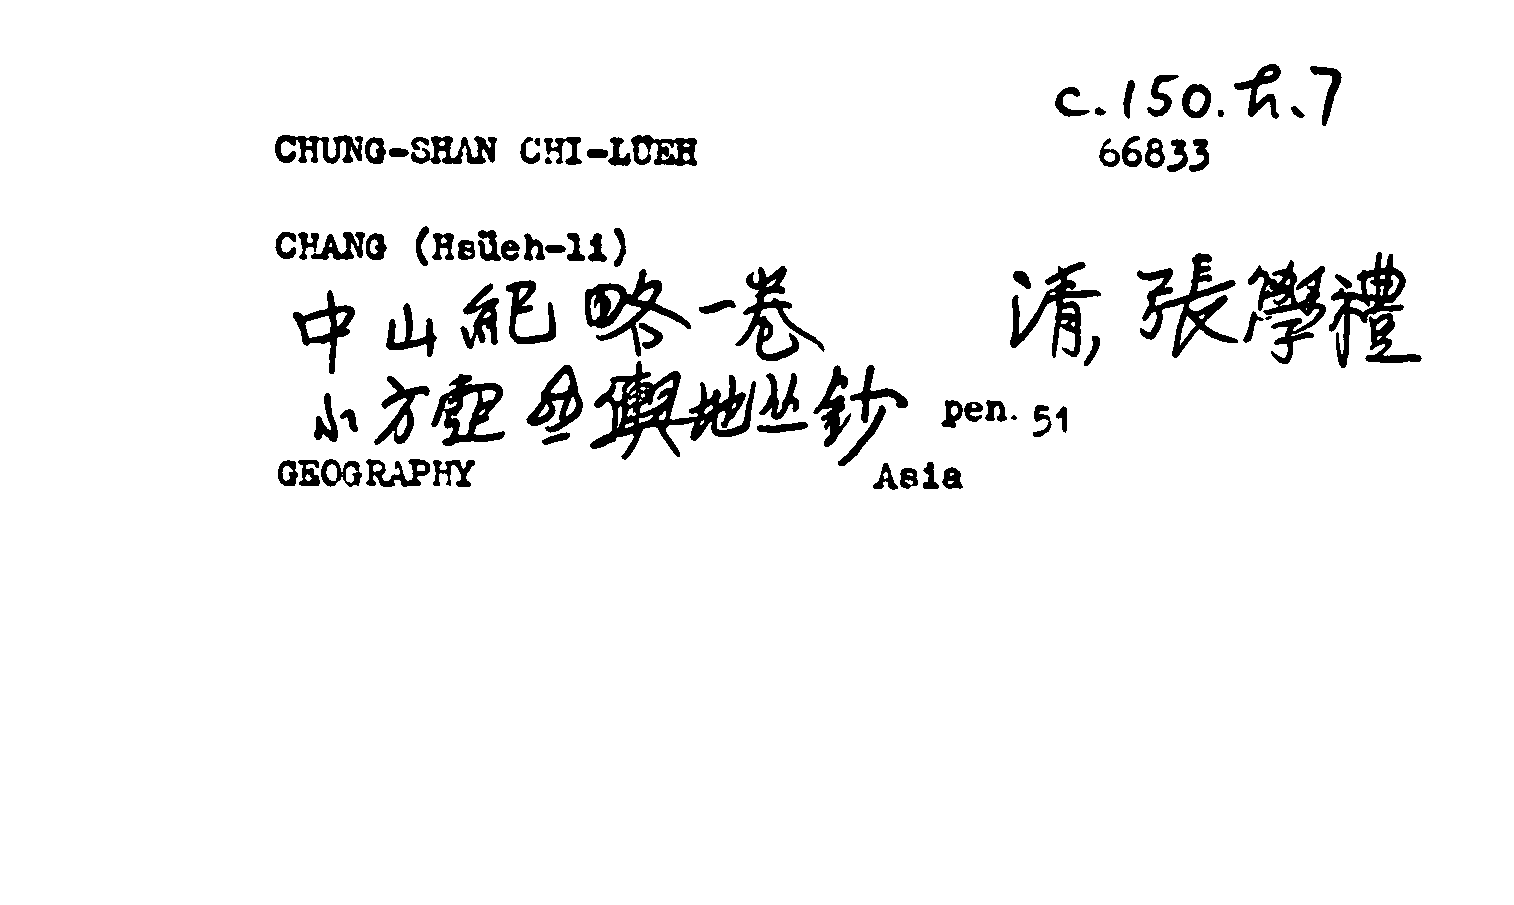 c.150.h.7
CHUNG-SHAN CHI-LÜEH 66833
CHANG (Hsüeh-li)
中山紀略一卷 清, 張學禮
小方壺齋輿地丛鈔 pen. 51
GEOGRAPHY Asia